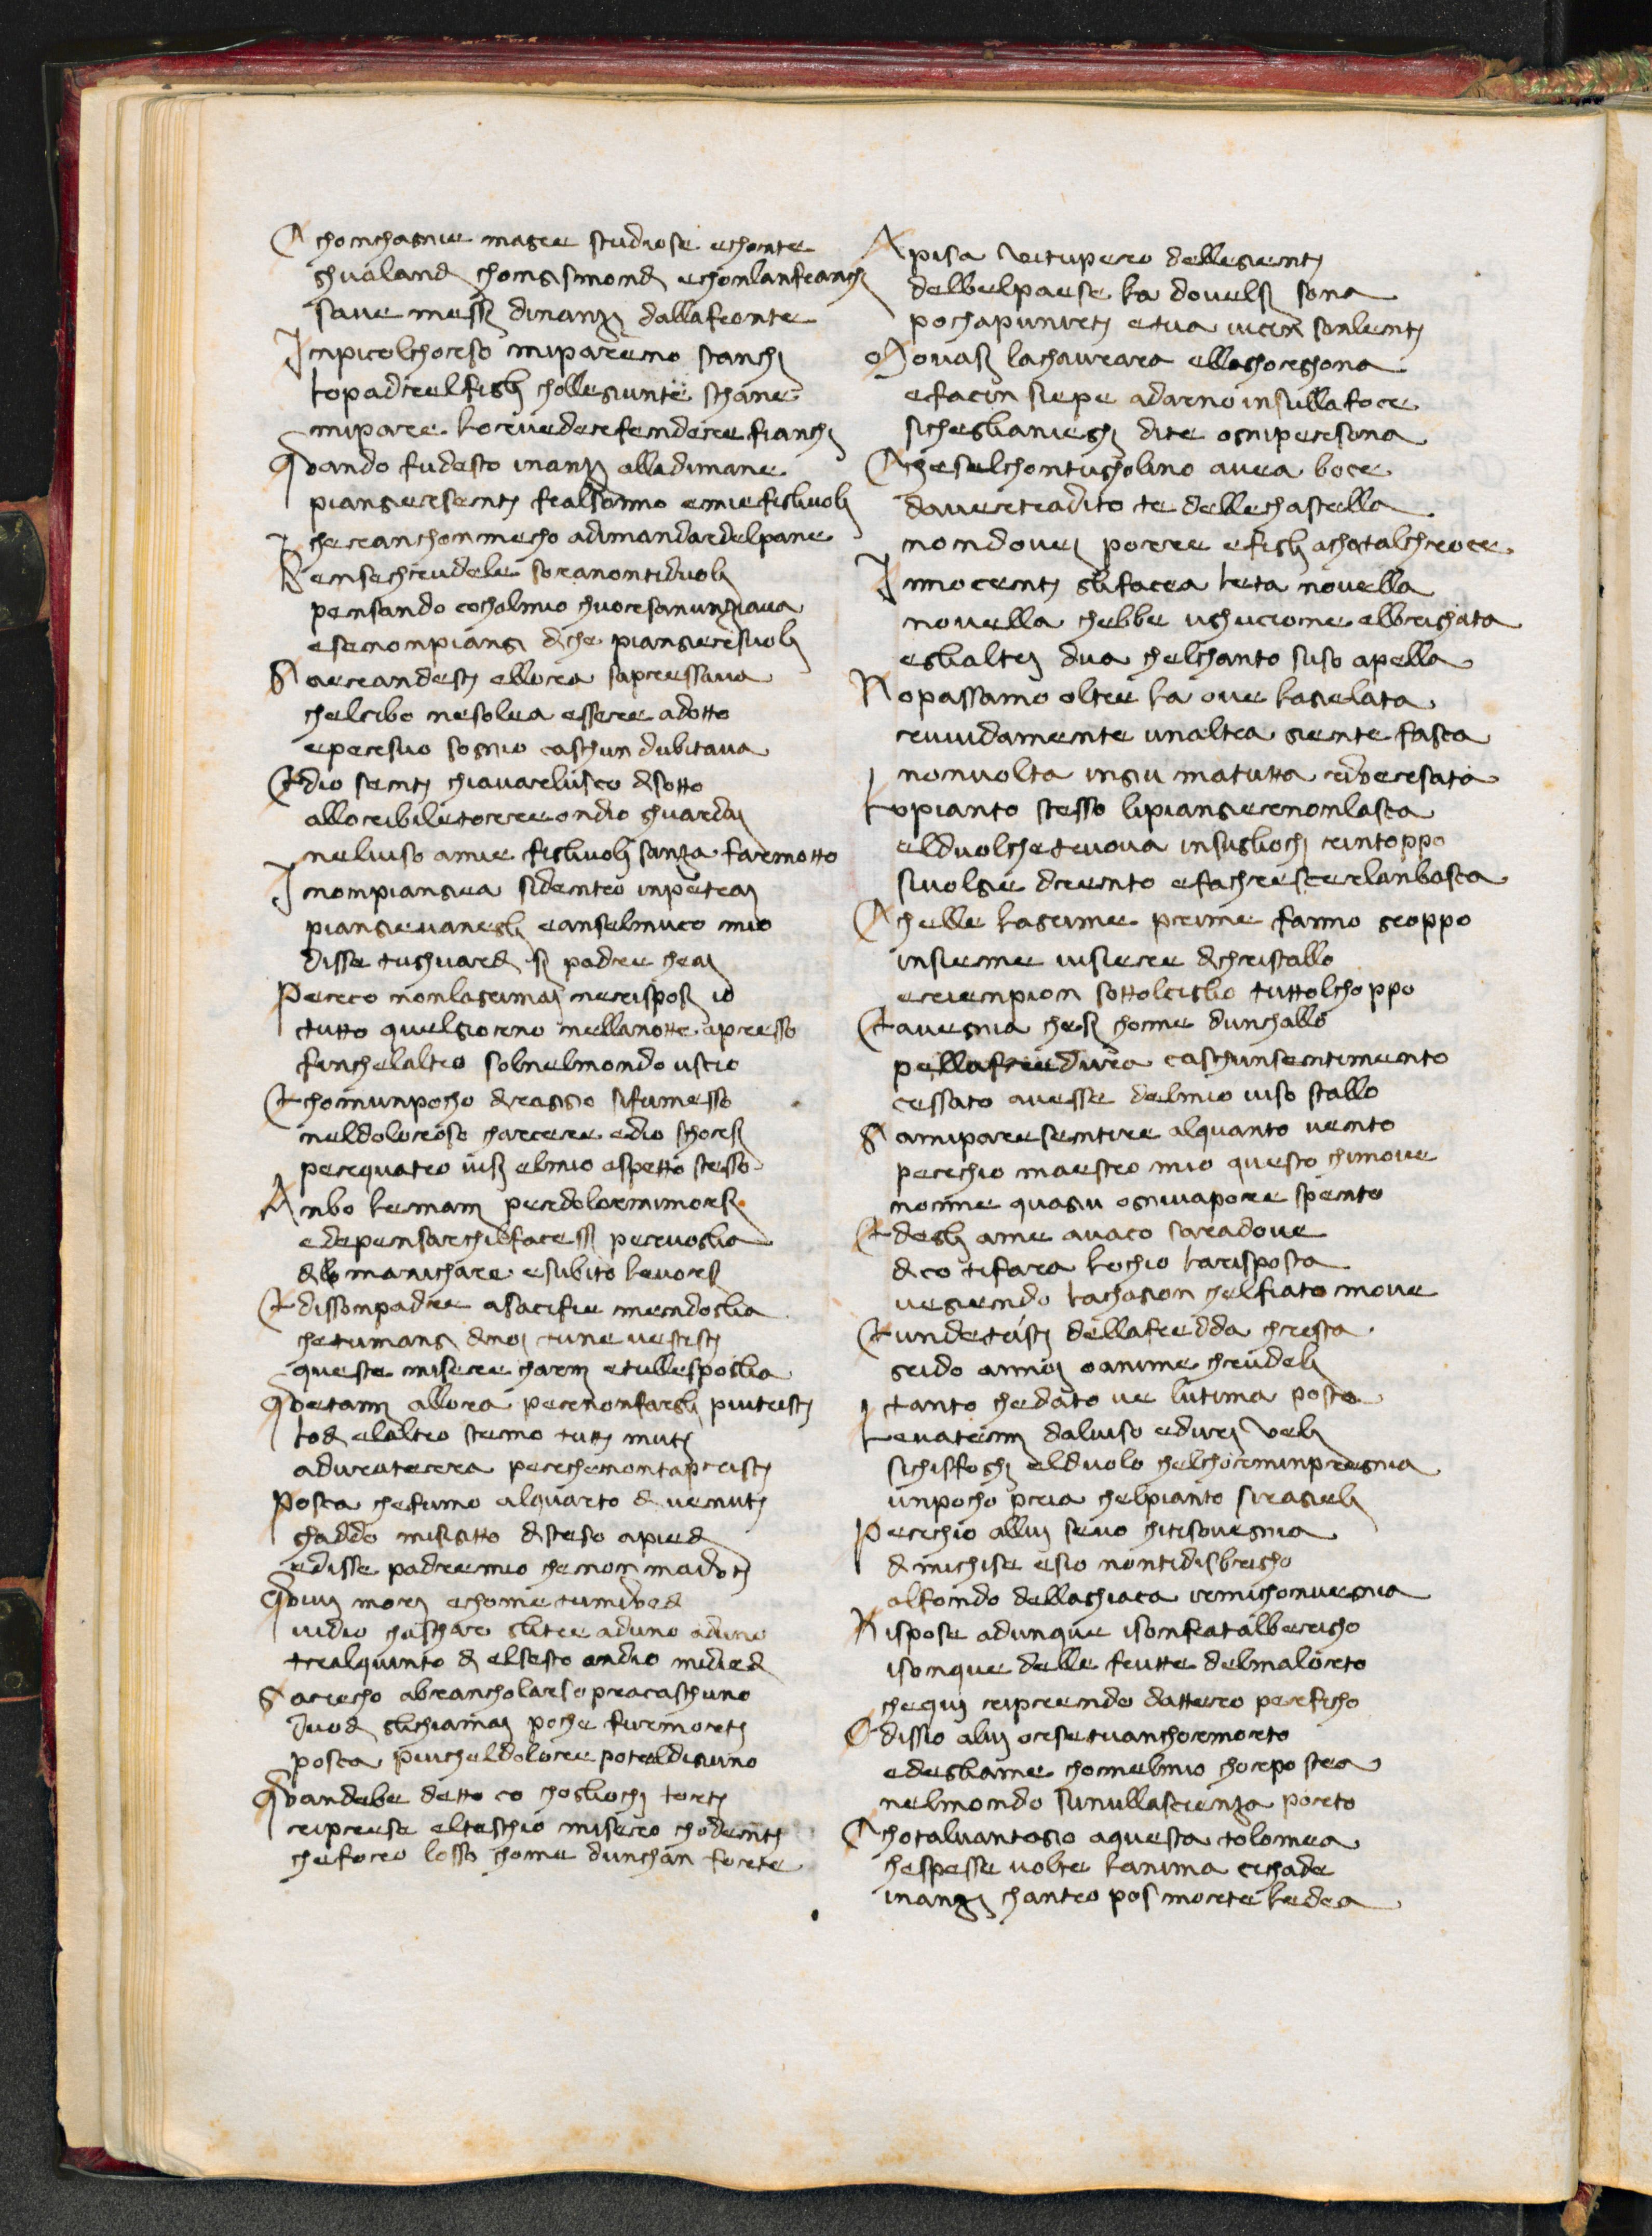 Chonchagnie magre studiose echonte
ghualandi chongsimondi echonlanfranchi
save messi dinanzi dallafronte
Inpicolchorso miparieno stanchi
lopadrelfigli chollegiunte schane
mipare loruedere fendere fianchi
Quando fudesto inanzi alladimane
piangersenti fralsonno emiefigliuoli
cheranchonmecho adimandardelpane
Bensechrudele segianontiduoli
pensando cochalmio chuoresanunziava
esenonpiangi diche piangeresuoli
Giaerandesti ellora sapressava
chelcibo nesolea essere adotto
epersuo sognio caschun dubitava
Edio senti chiavareluscio disotto
allorribiletorre ondio ghuardai
nelviso amie figliuoli sanza farmotto
I nonpiangea sidentro inpetrai
piangevanegli eanselmucco mio
disse tughuardi si padre cheai
Percio nonlagrimai nerisposi io
tutto quelgiorno nellanotte apresso
finchelaltro solnelmondo uscio
Chomunpocho diraggio sifumesso
neldoloroso charcere edio schorsi
perquatro visi elmio aspetto stesso
Anbo lemani perdolormimorsi
edepensarchilfacessi pervoglia
di manichare esubito levorsi
Edissonpadre asacifie mendoglia
chetumangi dinoi tune vestisti
queste misere charni etullespoglia
Quetami allora pernonfargli piutristi
lodi elaltro stemo tutti muti
aduraterra perchenontapristi
Posca chefumo alquarto di venuti
ghaddo misigitto disteso apiedi
edisse padremio chenon maiuti
Quivi mori echome tumivedi
vidio chaschare glitre aduno aduno
tralquinto di elsesto ondio midiedi
Gaciecho abrancholarsopracaschuno
duodi glichiamai poche furmorti
posca piucheldolore poteldiguno
Quandebe detto co chogliochi torti
riprese elteschio misero chodenti
chefuro losso chome dunchan forte
A pisa vitupero dellegienti
delbelpaese la dovelsi sona
pochapunirti etua vicin sonlenti
Movasi lachavrara ellaghorghona
efacin siepe adarno insullafoce
sichegliannieghi dite ognipersona
Cheselchontugholino avea boce
davertradito te dellechastella
nondovei porre efigli achotalchroce
Innocenti glifacea leta novella
novella thebbe ughucione elbrighata
eglialtri dua chelchanto suso apella
Nopassamo oltre la ove lagelata
ruvidamente unaltra giente fasca
nonvolta ingiu matutta riversata
Lopianto stesso lipiangernonlasca
elduolchetruova insuglochi rintoppo
sivolgie drento efachresscerlanbasca
Chelle lagrime prime fanno groppo
insieme visiere dichristallo
eriempion sottolciglio tuttolchoppo
Eavegnia chesi chome dunchallo
pellafreddura caschunsentimento
cessato avesse delmio viso stallo
Giamiparesentire alquanto vento
perchio maestro mio questo chimove
nonne quagiu ognivapore spento
Edegli ame avaco saradove
dico tifara lochio larisposta
vegiendo lachagion chelfiato move
Eundetristi dellafredda chrosta
grido annoi oanime chrudeli
tanto chedato ve lultima posta
Levatemi dalviso eduri veli
sichisfoghi elduolo chelchorminpregnia
unpocho pria chelpianto siragieli
Perchio allui sevo chitisovegnia
dimichise esio nontidisbricho
alfondo dellaghiaca irmichonvegnia
Rispose adunque isonfratalbericho
isonque delle frutte delmalorto
chequi riprendo dattero perficho
O dissio alui orsetuanchormorto
edegliame chomelmio chorpo stea
nelmondo sunullascienza porto
Chotalvantagio aquesta tolomea
chespesse volte lanima cichade
inanzi chantropos morte ledea